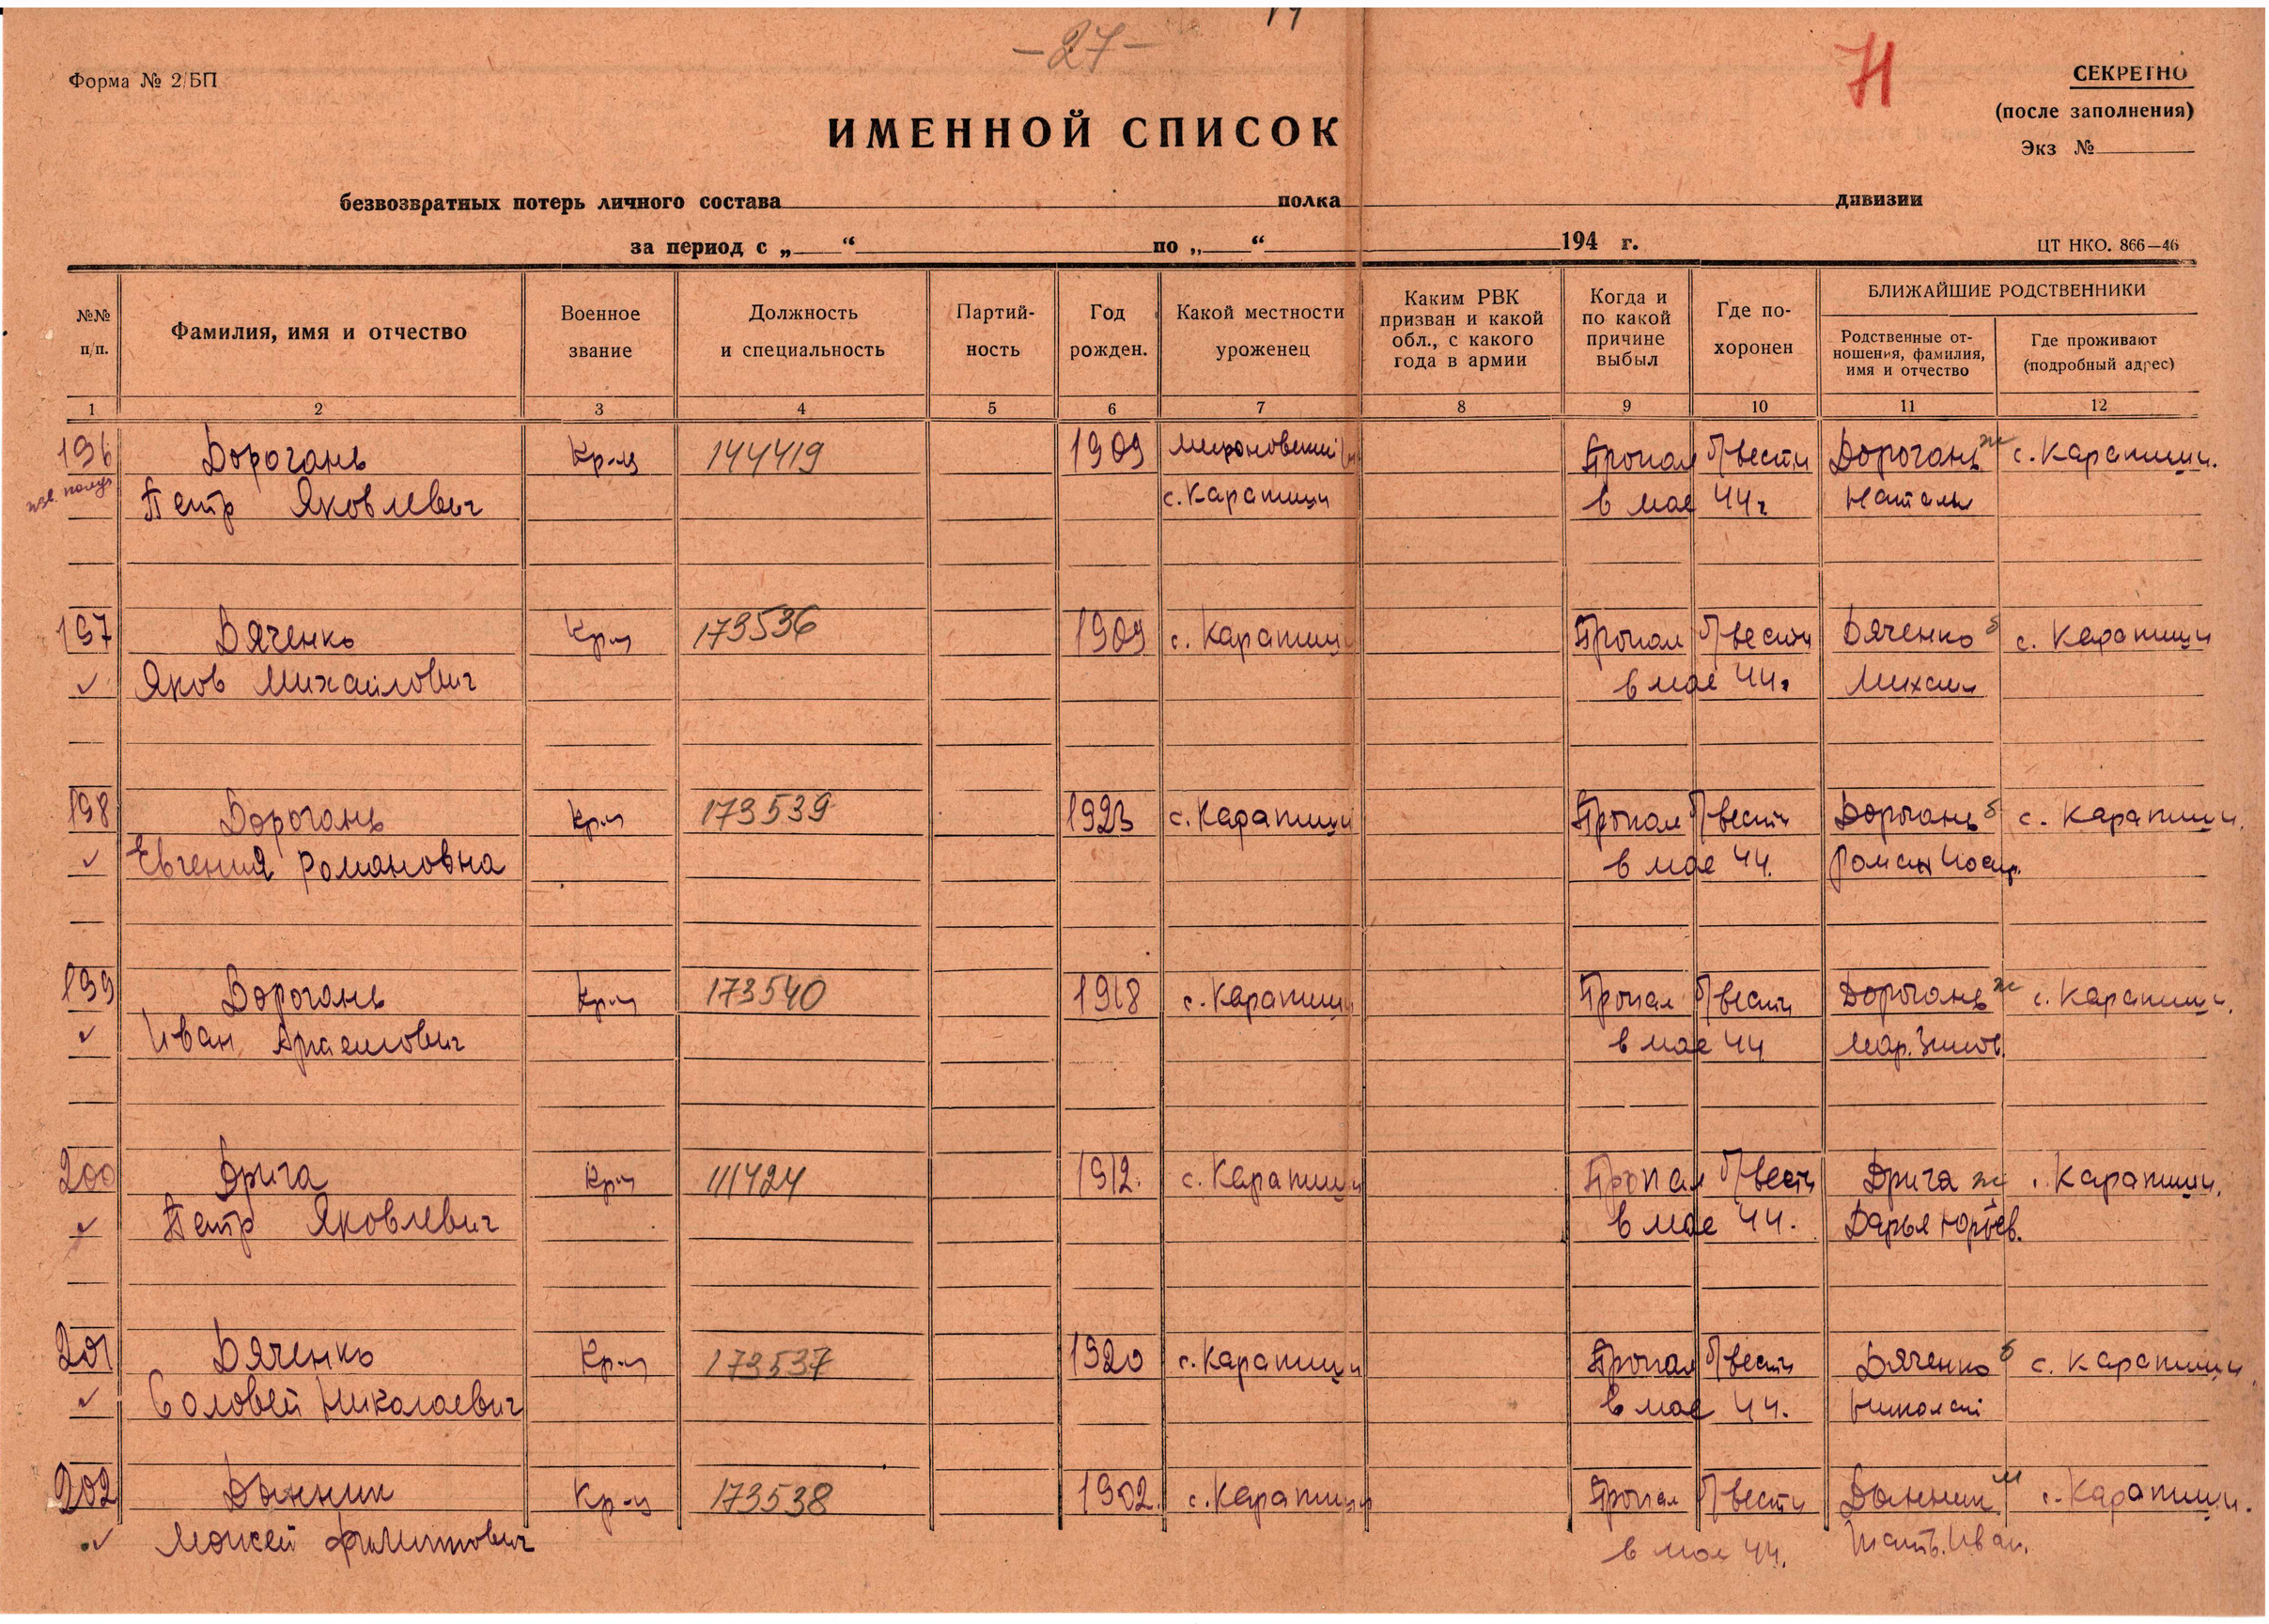 -27-
Н
Форма № 2/БП
СЕКРЕТНО
(после заполнения)
Экз №
ИМЕННОЙ СПИСОК
безвозвратных потерь личного состава полка дивизии
за период с „ “ по „ “ 194 г.
ЦТ НКО. 866—46
№№ п/п.
Фамилия, имя и отчество
Военное звание
Должность и специальность
Партий-ность
Год рожден.
Какой местности уроженец
Каким РВК призван и какой обл., с какого года в армии
Когда и по какой причине выбыл
Где по-хоронен
БЛИЖАЙШИЕ РОДСТВЕННИКИ
Родственные от-ношения, фамилия, имя и отчество
Где проживают (подробный адрес)
1 2 3 4 5 6 7 8 9 10 11 12
196 Дорогань Кр-ц 144419 1909 Мироновский Пропал б/вести Дорогань ж с. Карапиши.
Петр Яковлевич с. Карапиши в мае 44г Наталь
197 Дяченко Кр-ц 173536 1909 с. Карапиши Пропал б/вести Дяченко б с. Карапиши
Яков Михайлович в мае 44г Михаил
198 Дорогань Кр-ц 173539 1923 с. Карапиши Пропал б/вести Дорогань б с. Карапиши.
Евгения Романовна в мае 44. Роман Иосиф.
199 Дорогань Кр-ц 173540 1918 с. Карапиши Пропал б/вести Дорогань ж с. Карапиши.
Иван в мае 44 Мар.
200 Дрига Кр-ц 111424 1912. с. Карапиши Пропал б/вести Дрига ж . Карапиши.
Петр Яковлевич в мае 44. Дарья Юрьев.
201 Дяченко Кр-ц 173537 1920 с. Карапиши Пропал б/вести Дяченко б с. Карапиши
Соловей Николаевич в мае 44. Николай
202 Дынник Кр-ц 173538 1902. с. Карапиши Пропал б/вести Дынник м с. Карапиши.
Мокей Филиппович в мае 44. Иван.